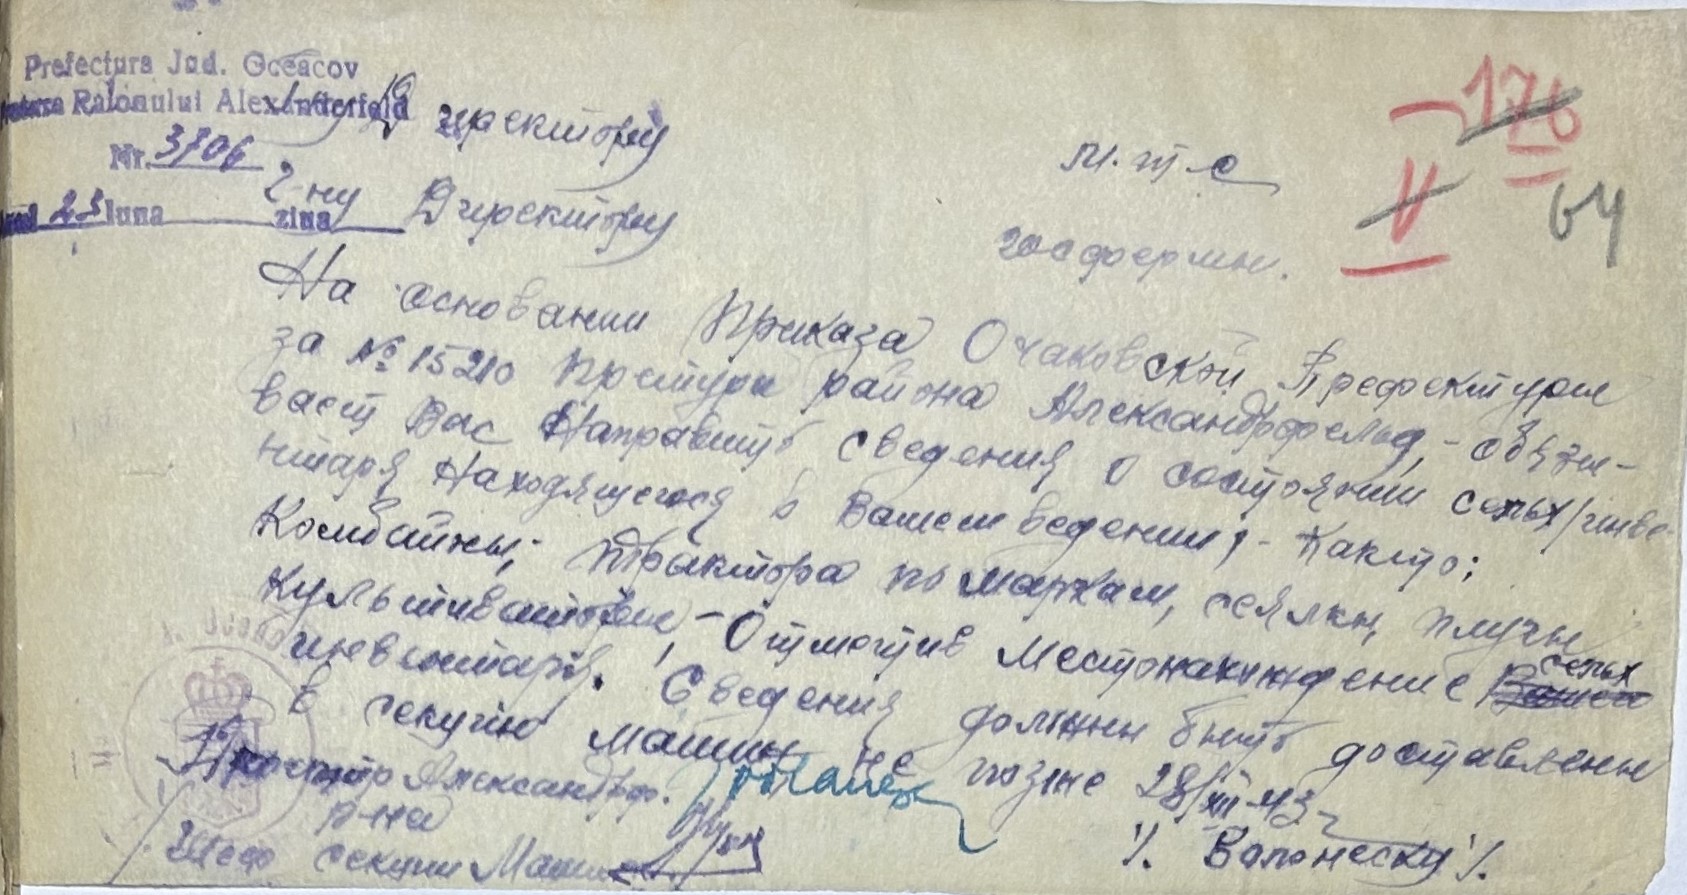 Prefectura Jud. Oceacov
Raionului Alexanderfeld
Nr. 3706
23 luna ziua
176
V
64
Директору М.т.с
г-ну Директору госфермы.
На основании Приказа Очаковской Префектуры
за № 15210 Претура района Александрфельд, - обязы-
вает Вас Направить сведения о состоянии сельх/инве-
нтаря Находящегося в Вашем ведении, - Както:
Комбайны; трактора по маркам, сеялки, плуги
Культиваторы, - Отметив Местонахождение сельх
инвентаря. Сведения должны быть доставлены
в секцию машин не позже 28/XII 43
Претор Александрф.
р-на
/. Волонеску /.
Шеф секции Машин